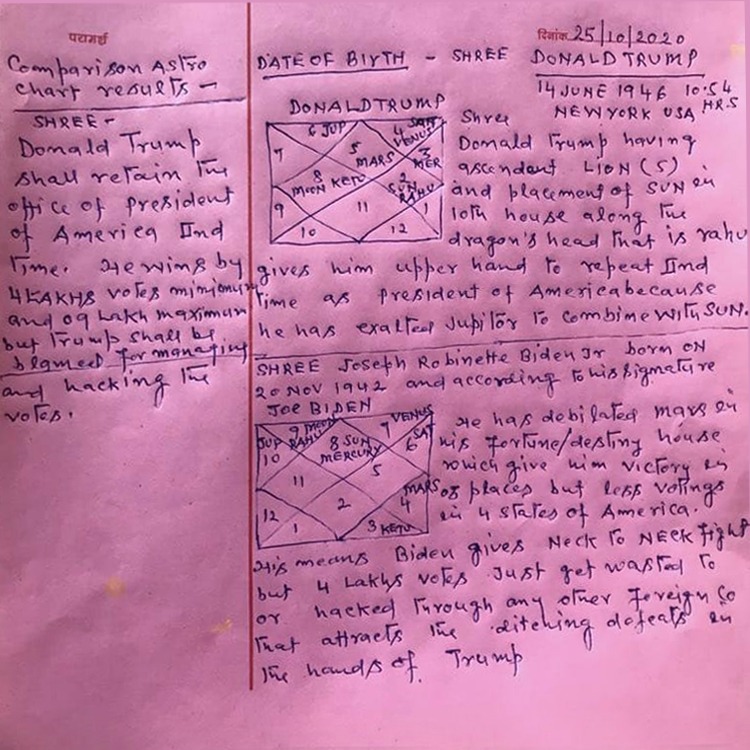 परामर्श
दिनांक 25/10/2020
Comparison Astro
chart results -
SHREE -
Donald Trump
shall retain the
office of president
of America IInd
time. He wins by
4 LAKHS votes minimum
and 09 Lakh maximum
but Trump shall be
blamed for managing
and hacking the
votes.
DATE OF BIRTH - SHREE DONALD TRUMP
14 JUNE 1946 10.54 HRS
NEWYORK USA
DONALD TRUMP
6 JUP
4 SAT
VENUS
7
5
MARS
3
MER
8
MOON KETU
2
SUN
RAHU
9
11
1
10
12
Shree
Donald Trump having
ascendent LION (5)
and placement of SUN in
10th house along the
dragon's head that is rahu
gives him upper hand to repeat IInd
time as president of America because
he has exalted Jupitor to combine with SUN.
SHREE Joseph Robinette Biden Jr born ON
20 NOV 1942 and according to his signature
JOE BIDEN
9 MOON
RAHU
7
VENUS
JUP
10
8 SUN
MERCURY
6
SAT
11
5
2
MARS
4
12
1
3 KETU
He has debilated mars in
his fortune/destiny house
which give him victory in
08 places but less votings
in 4 states of America.
His means Biden gives NECK TO NECK fight
but 4 Lakhs votes Just get wasted to
or hacked through any other Foreign Co
that attracts the ditching defeats in
the hands of Trump